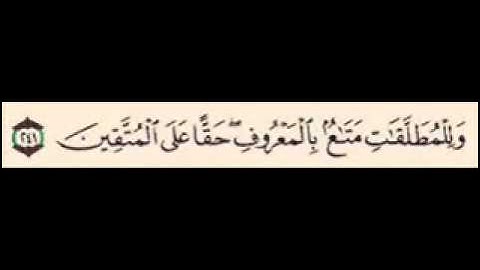 وَلِلْمُطَلَّقَٰتِ مَتَٰعٌۢ بِٱلْمَعْرُوفِ ۖ حَقًّا عَلَى ٱلْمُتَّقِينَ ٢٤١